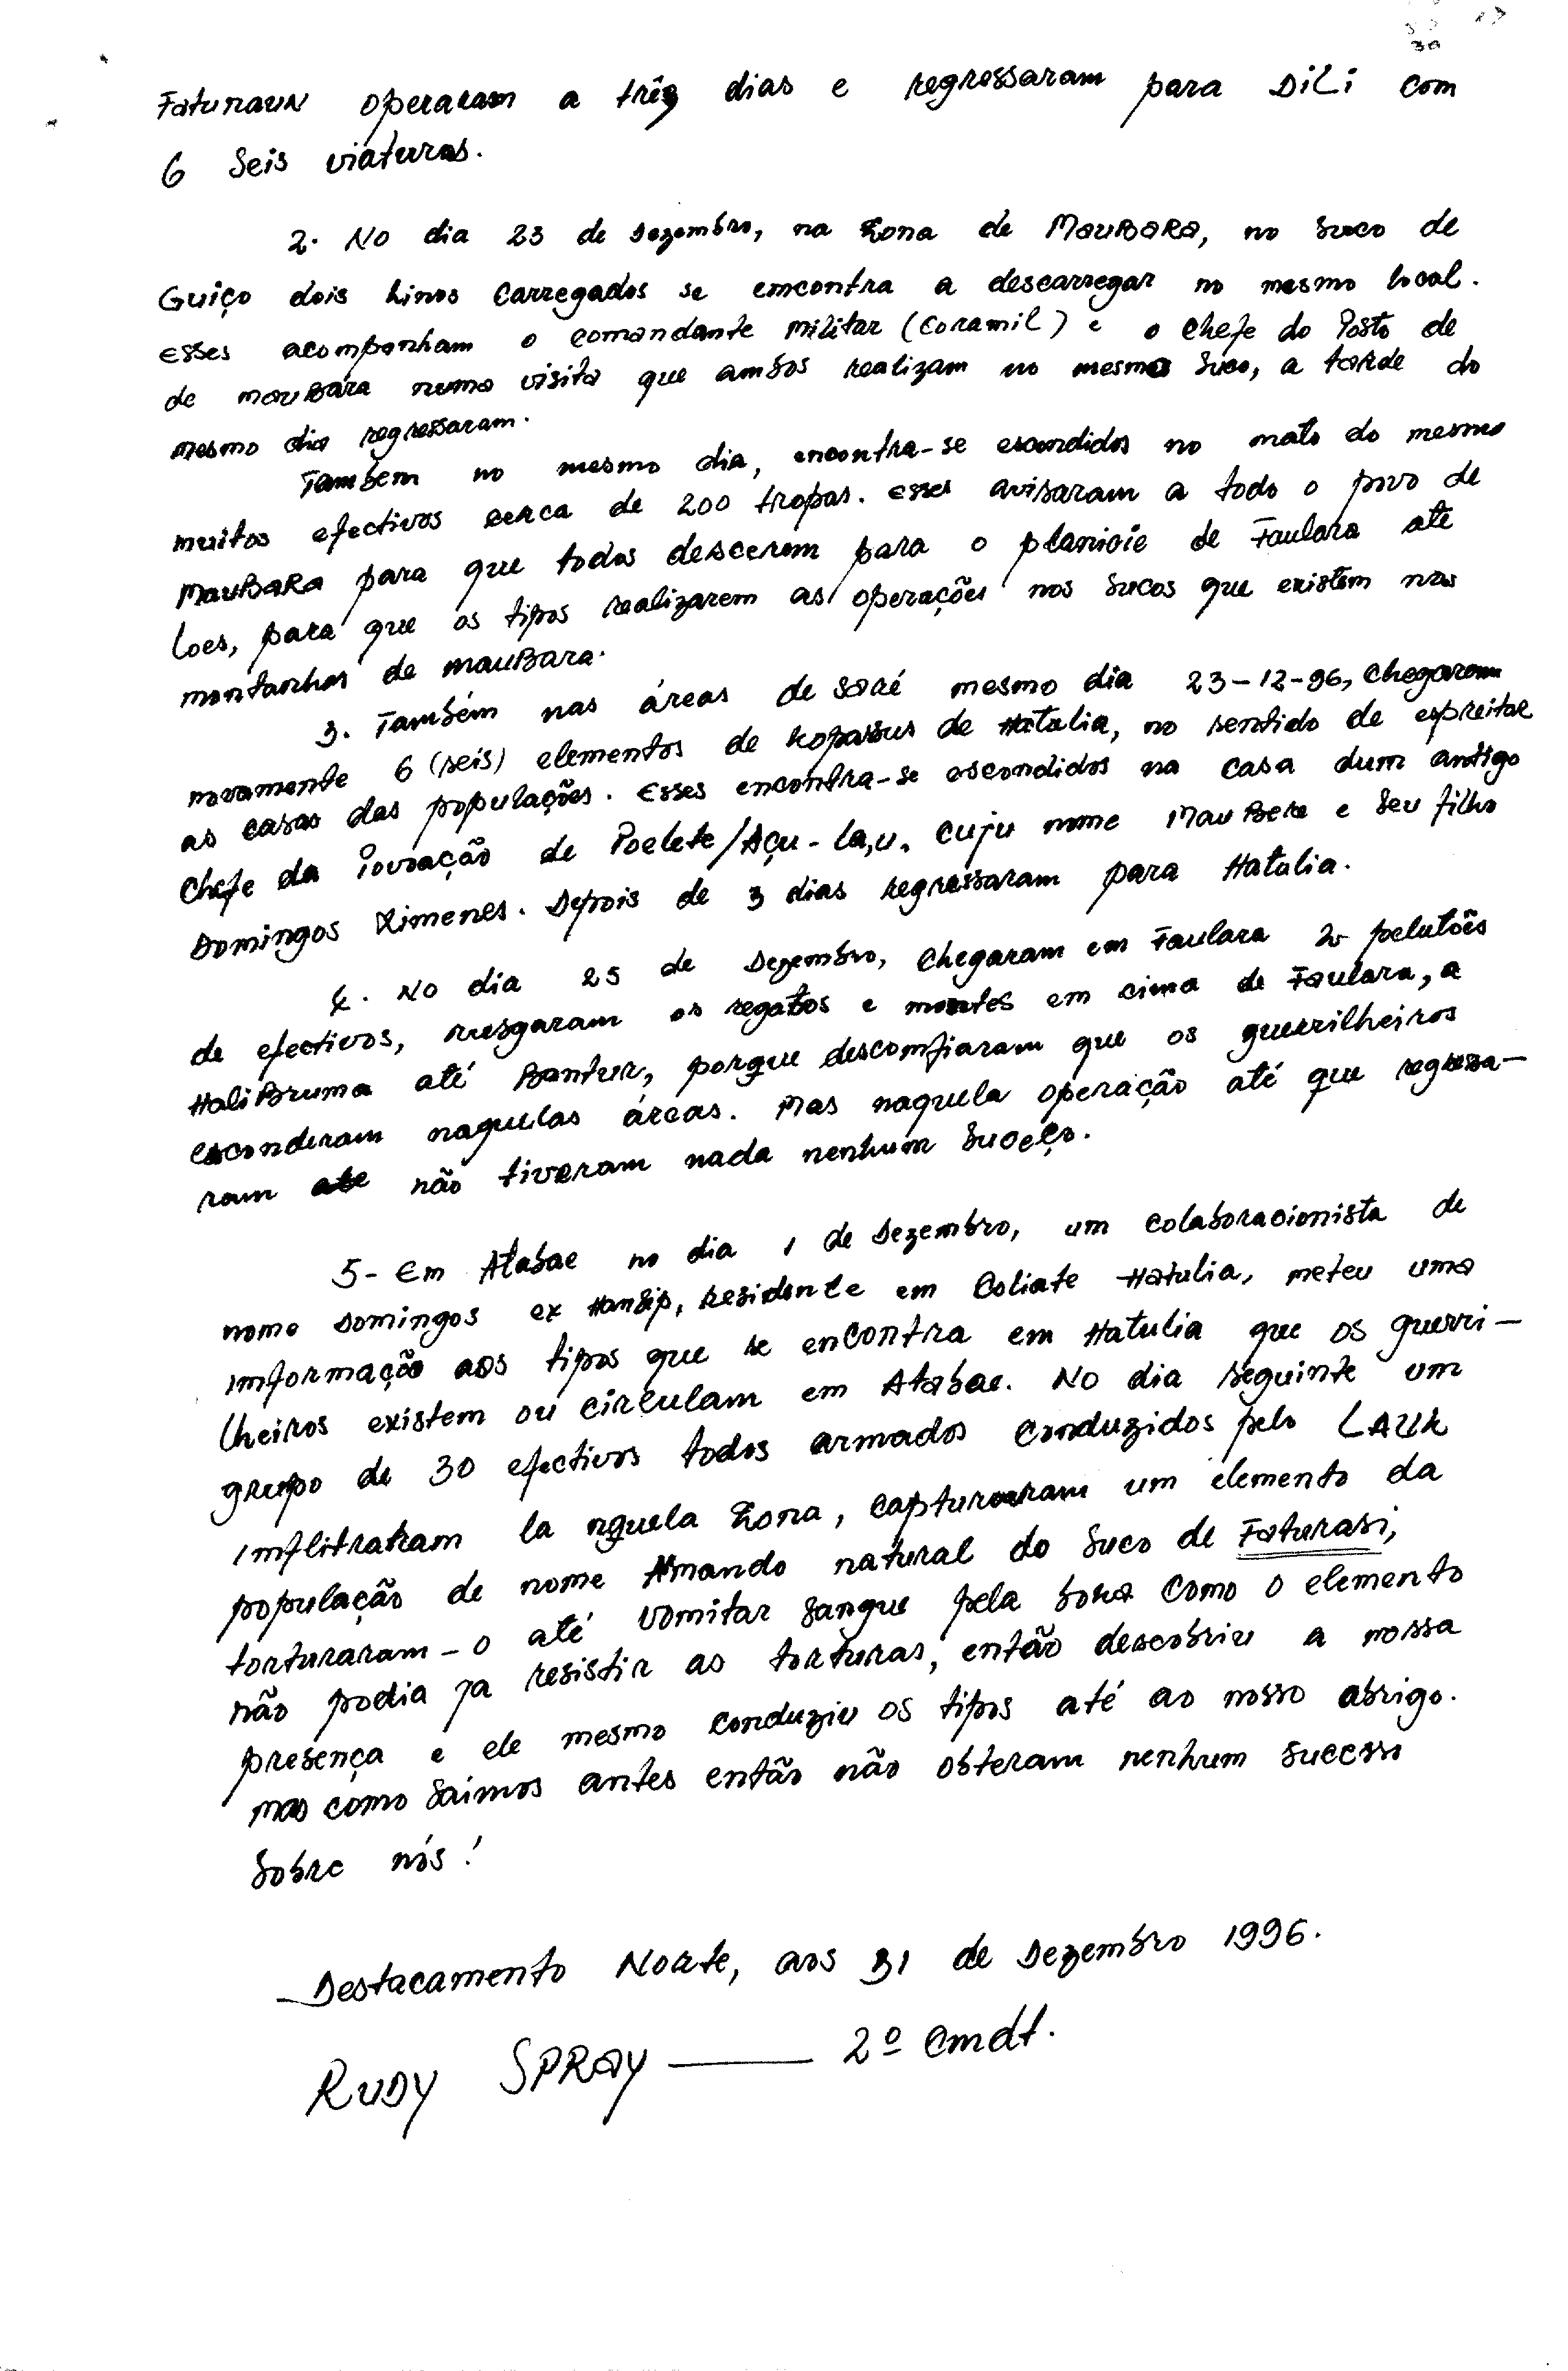 30
Faturaun operaram a três dias e regressaram para Dili com
6 Seis viaturas.
2. No dia 23 de Dezembro, na Zona de MauBara, no Suco de
Guiço dois hinos carregados se emcontra a descarregar no mesmo local.
Esses acompanham o comandante Militar (Coramil) e o Chefe do Posto de
de MauBara numa visita que ambos realizam no mesmo Suco, a tarde do
mesmo dia regressaram.
Também no mesmo dia, encontra-se escondidos no mato do mesmo
muitos efectivos cerca de 200 tropas. Esses avisaram a todo o povo de
MauBara para que todos descerem para o planicie de Faulara até
Loes, para que os tipos realizarem as operações nos Sucos que existem nas
montanhas de mauBara.
3. Também nas áreas de Saré mesmo dia 23-12-96, chegaram
novamente 6 (seis) elementos de kopassus de Hatulia, no sentido de espreitar
as casas das populações. Esses encontra-se escondidos na casa dum antigo
Chefe da Povoação de Poelete/Açu-la,u, cuju nome MauBere e seu filho
Domingos Ximenes. Depois de 3 dias regressaram para Hatulia.
4. No dia 25 de Dezembro, chegaram em Faulara 2 pelutões
de efectivos, rusgaram os regatos e montes em cima de Faulara, a
HaliBruma até Bantur, porque descomfiaram que os guerrilheiros
esconderam naquelas áreas. Mas naquela operação até que regressa-
ram não tiveram nada nenhum Suceço.
5- Em Atabae no dia 1 de Dezembro, um colaboracionista de
nome Domingos ex Hansip, residente em Coliate Hatulia, meteu uma
imformação aos tipos que se encontra em Hatulia que os guerri-
lheiros existem ou circulam em Atabae. No dia seguinte um
grupo de 30 efectivos todos armados conduzidos pelo
imflitraram la naquela Zona, capturaram um elemento da
população de nome Amando natural do Suco de Faturasi,
torturaram-o até vomitar sangue pela boka como o elemento
não podia ja resistir as torturas, então descobriu a nossa
presença e ele mesmo conduziu os tipos até ao nosso abrigo.
mas como saimos antes então não obteram nenhum sucesso
Sobre nós!
Destacamento Norte, aos 31 de Dezembro 1996.
RUDY SPRAY — 2º Cmdt.